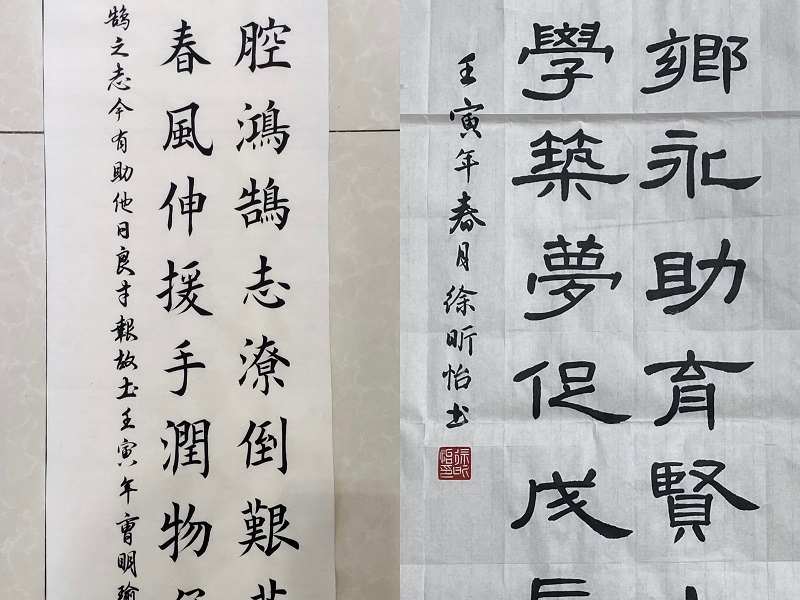 腔鴻鵠志潦倒艱
春風伸援手潤物
鵠之志今有助他日良才報故土壬寅年曹明瑜
鄉永助育賢
學築夢促成長
壬寅年春月徐昕怡书
徐昕怡印